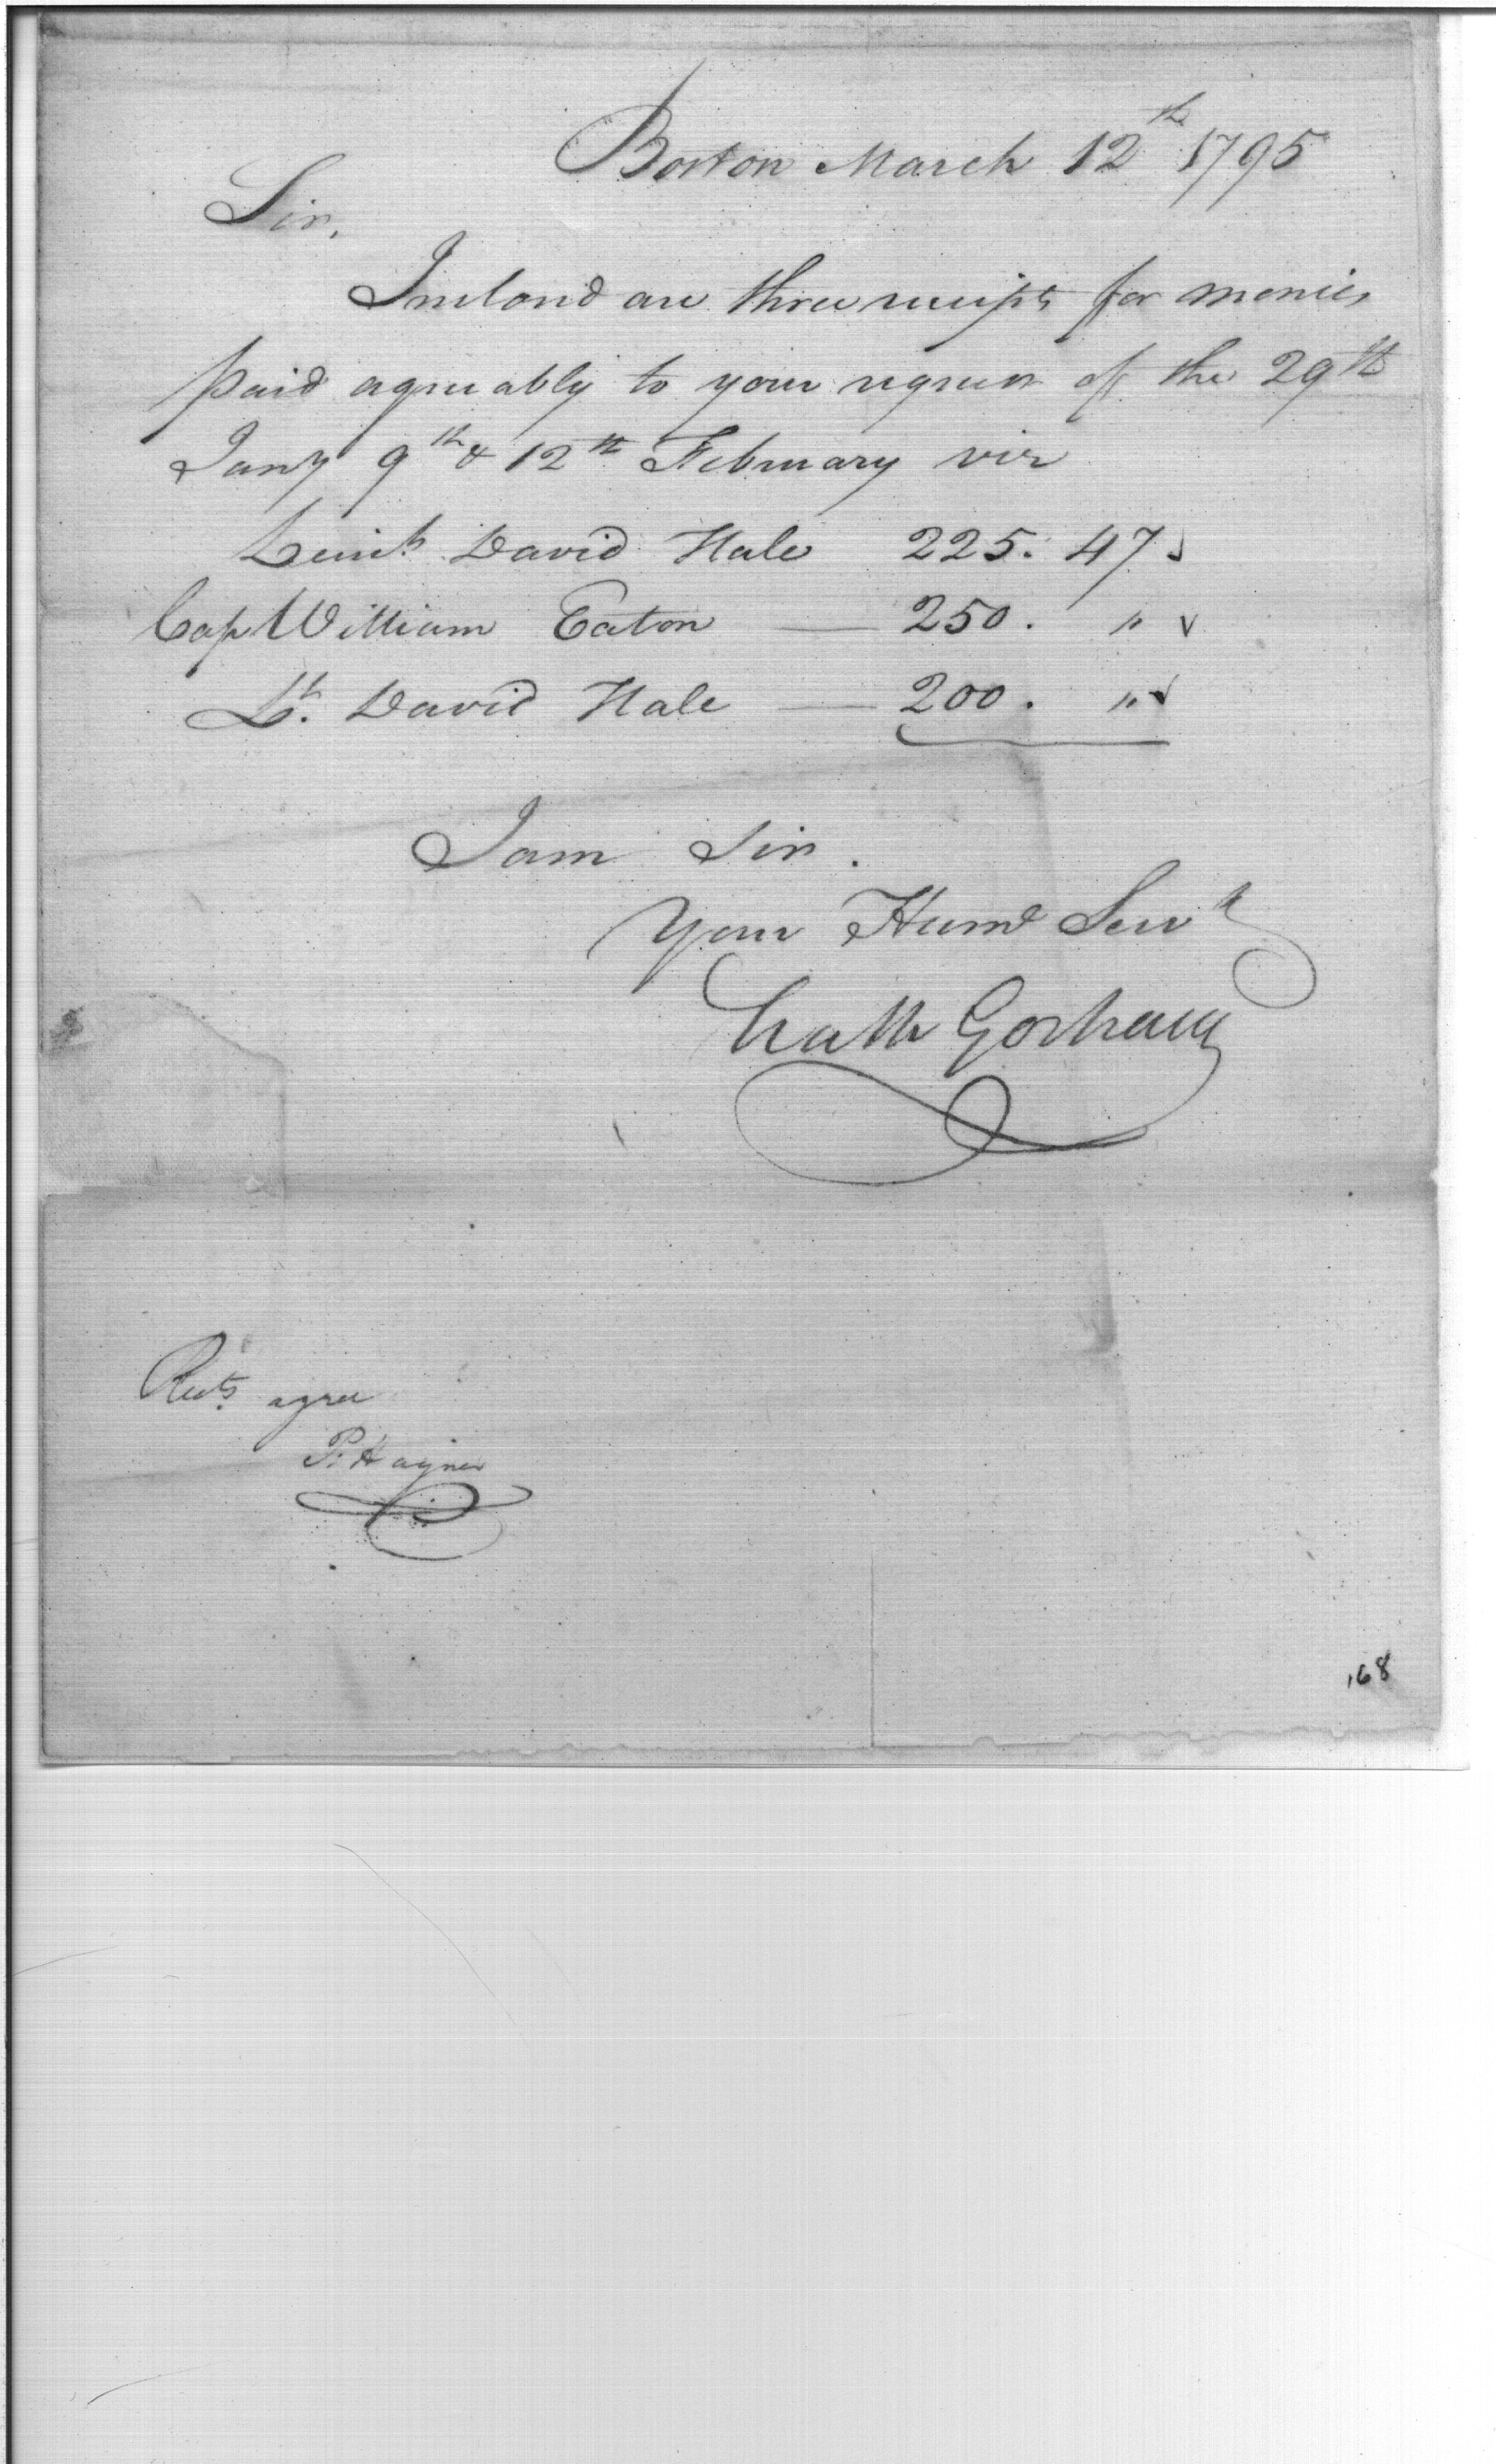 Boston March 12th 1795
Sir,
Inclosed are three receipts for monies
paid agreeably to your request of the 29th
Jany 9th & 12th February viz
Leiut. David Hale 225. 47 ✓
Cap William Eaton — 250. " ✓
Lt. David Hale — 200. " ✓
I am Sir.
Your Humb Servt
Nath Gorham
Rects. agree
P. Hagner
168